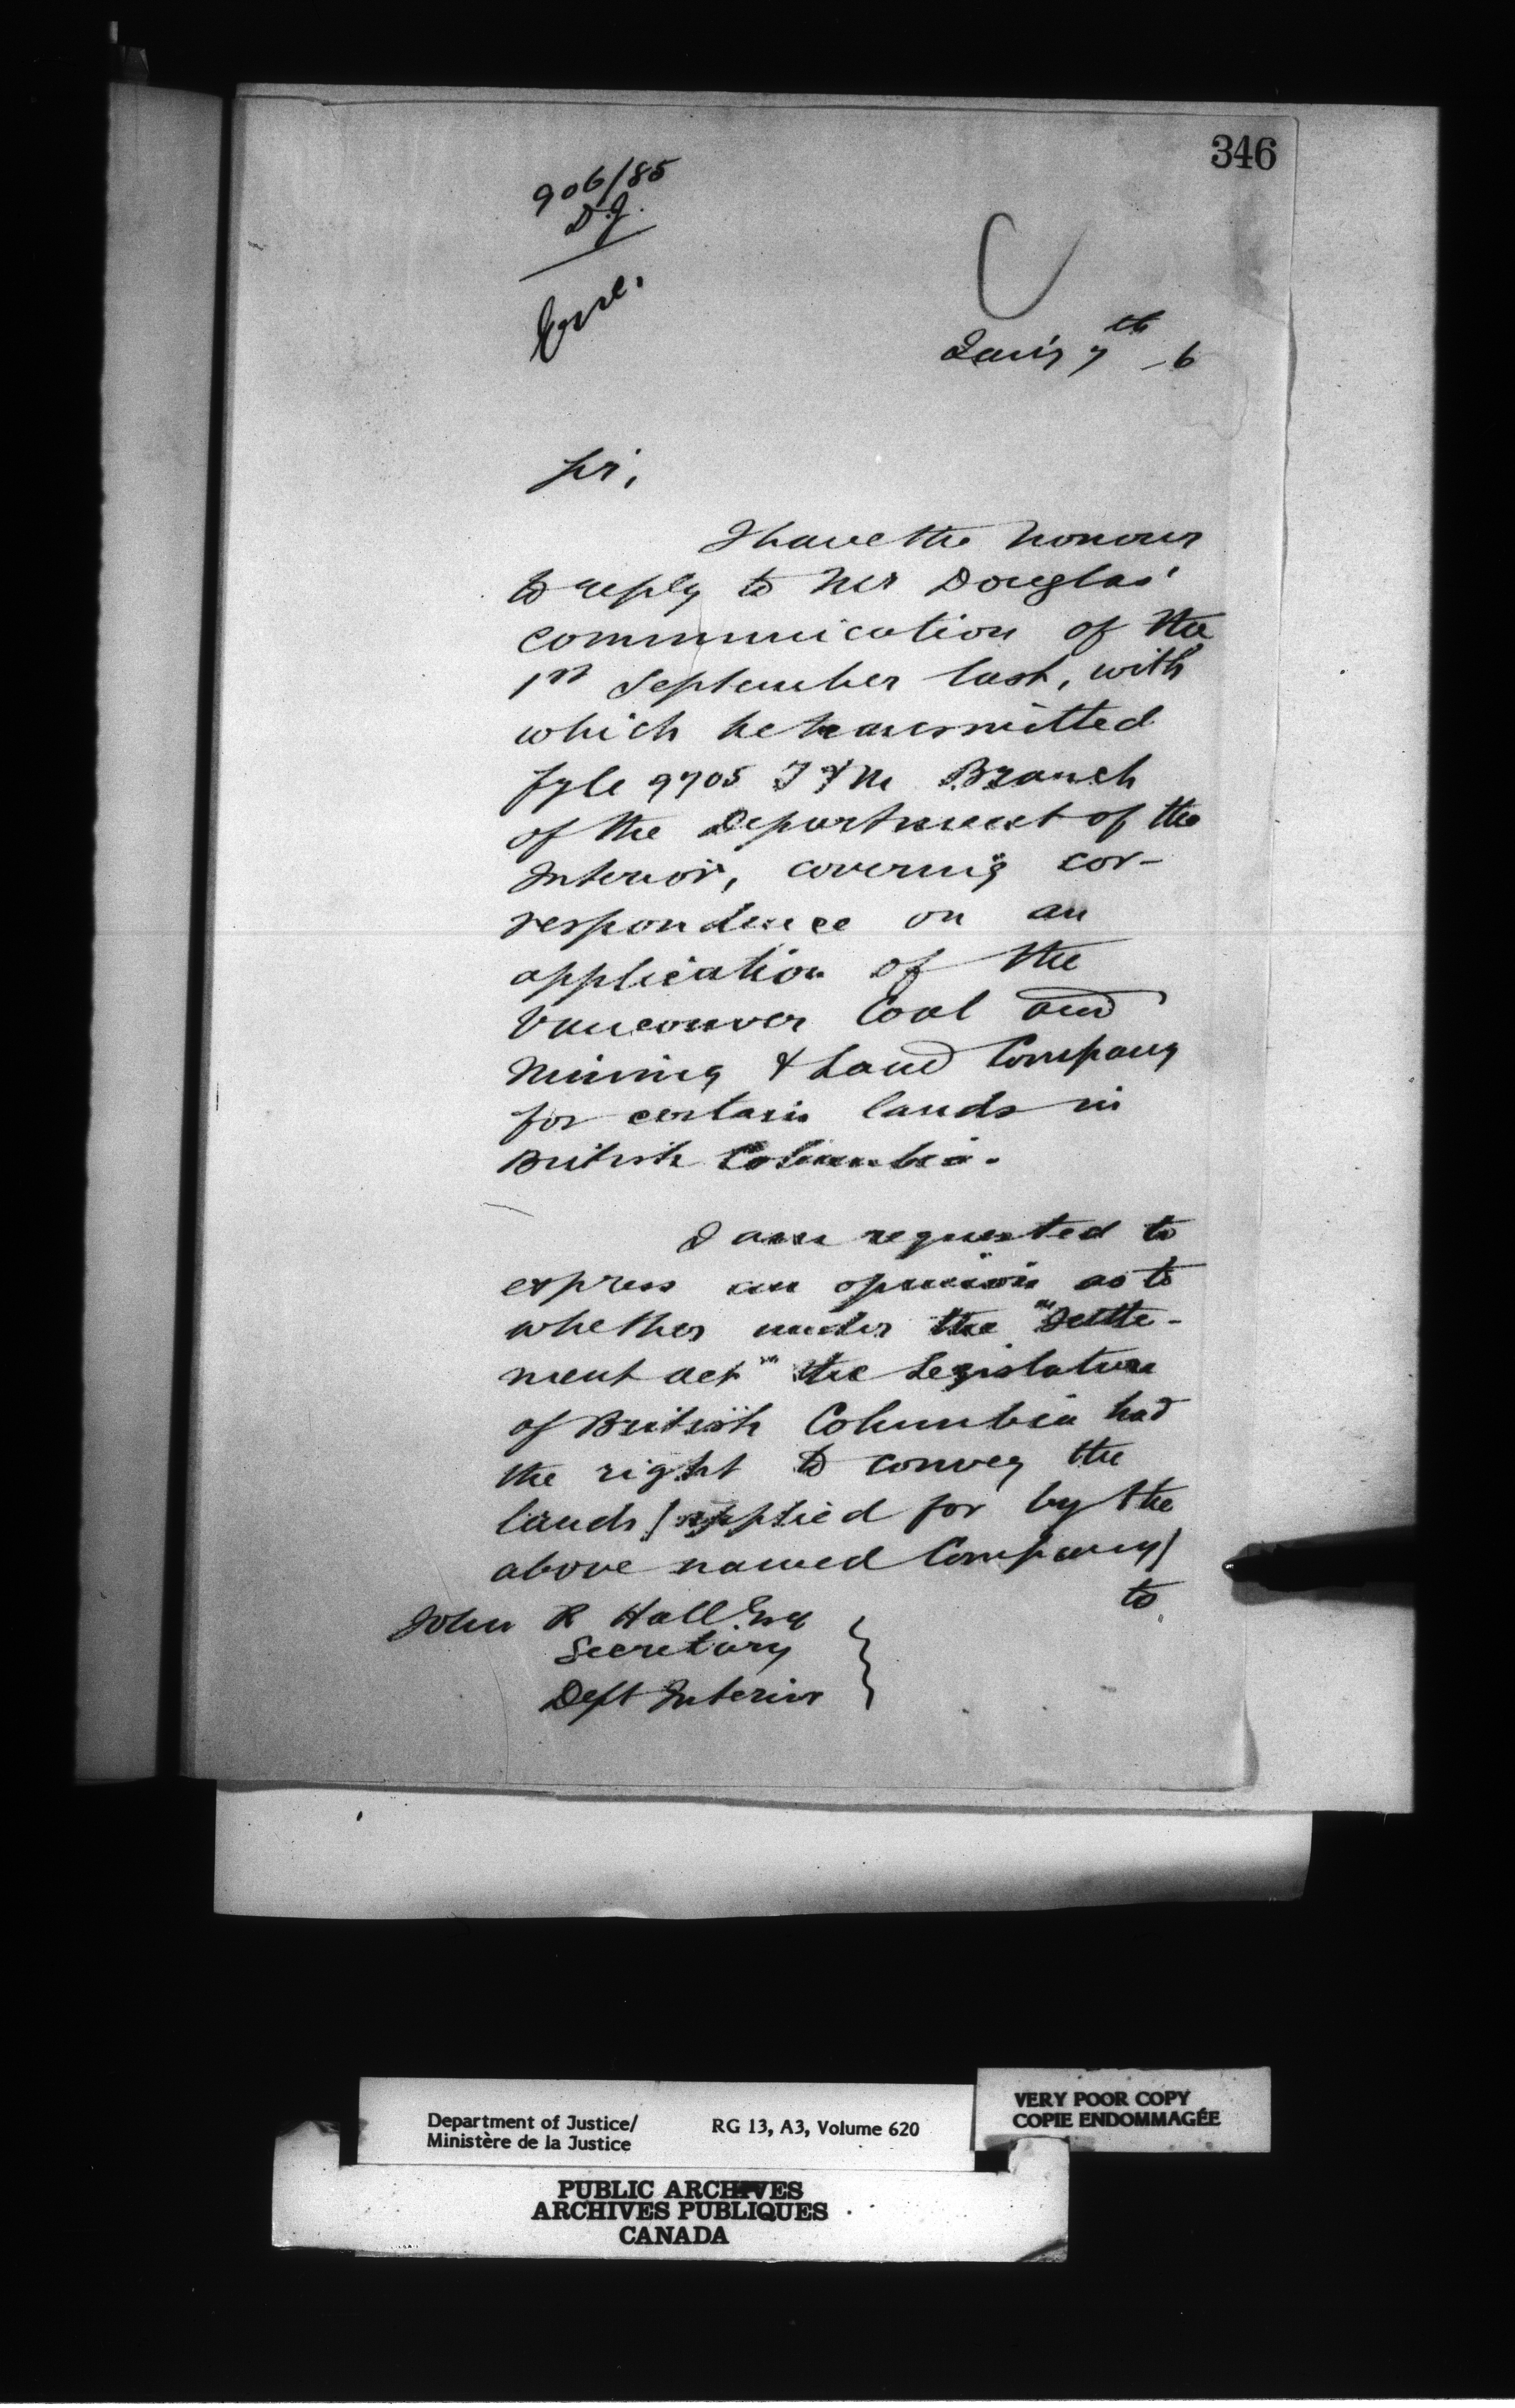 346
906/85
D.J.
Encl.
Jan'y 7th -6
Sir,
I have the honour
to reply to Mr Douglas'
communication of the
1st September last, with
which he transmitted
fyle 9705 T & M Branch
of the Department of the
Interior, covering cor-
respondence on an
application of the
Vancouver Coal and
Mining & Land Company
for certain lands in
British Columbia.
I am requested to
express an opinion as to
whether under the "Settle-
ment act" the Legislature
of British Columbia had
the right to convey the
lands (applied for by the
above named Company)
to
John R Hall Esq
Secretary
Dept Interior
Department of Justice/
Ministère de la Justice
RG 13, A3, Volume 620
VERY POOR COPY
COPIE ENDOMMAGÉE
PUBLIC ARCHIVES
ARCHIVES PUBLIQUES
CANADA